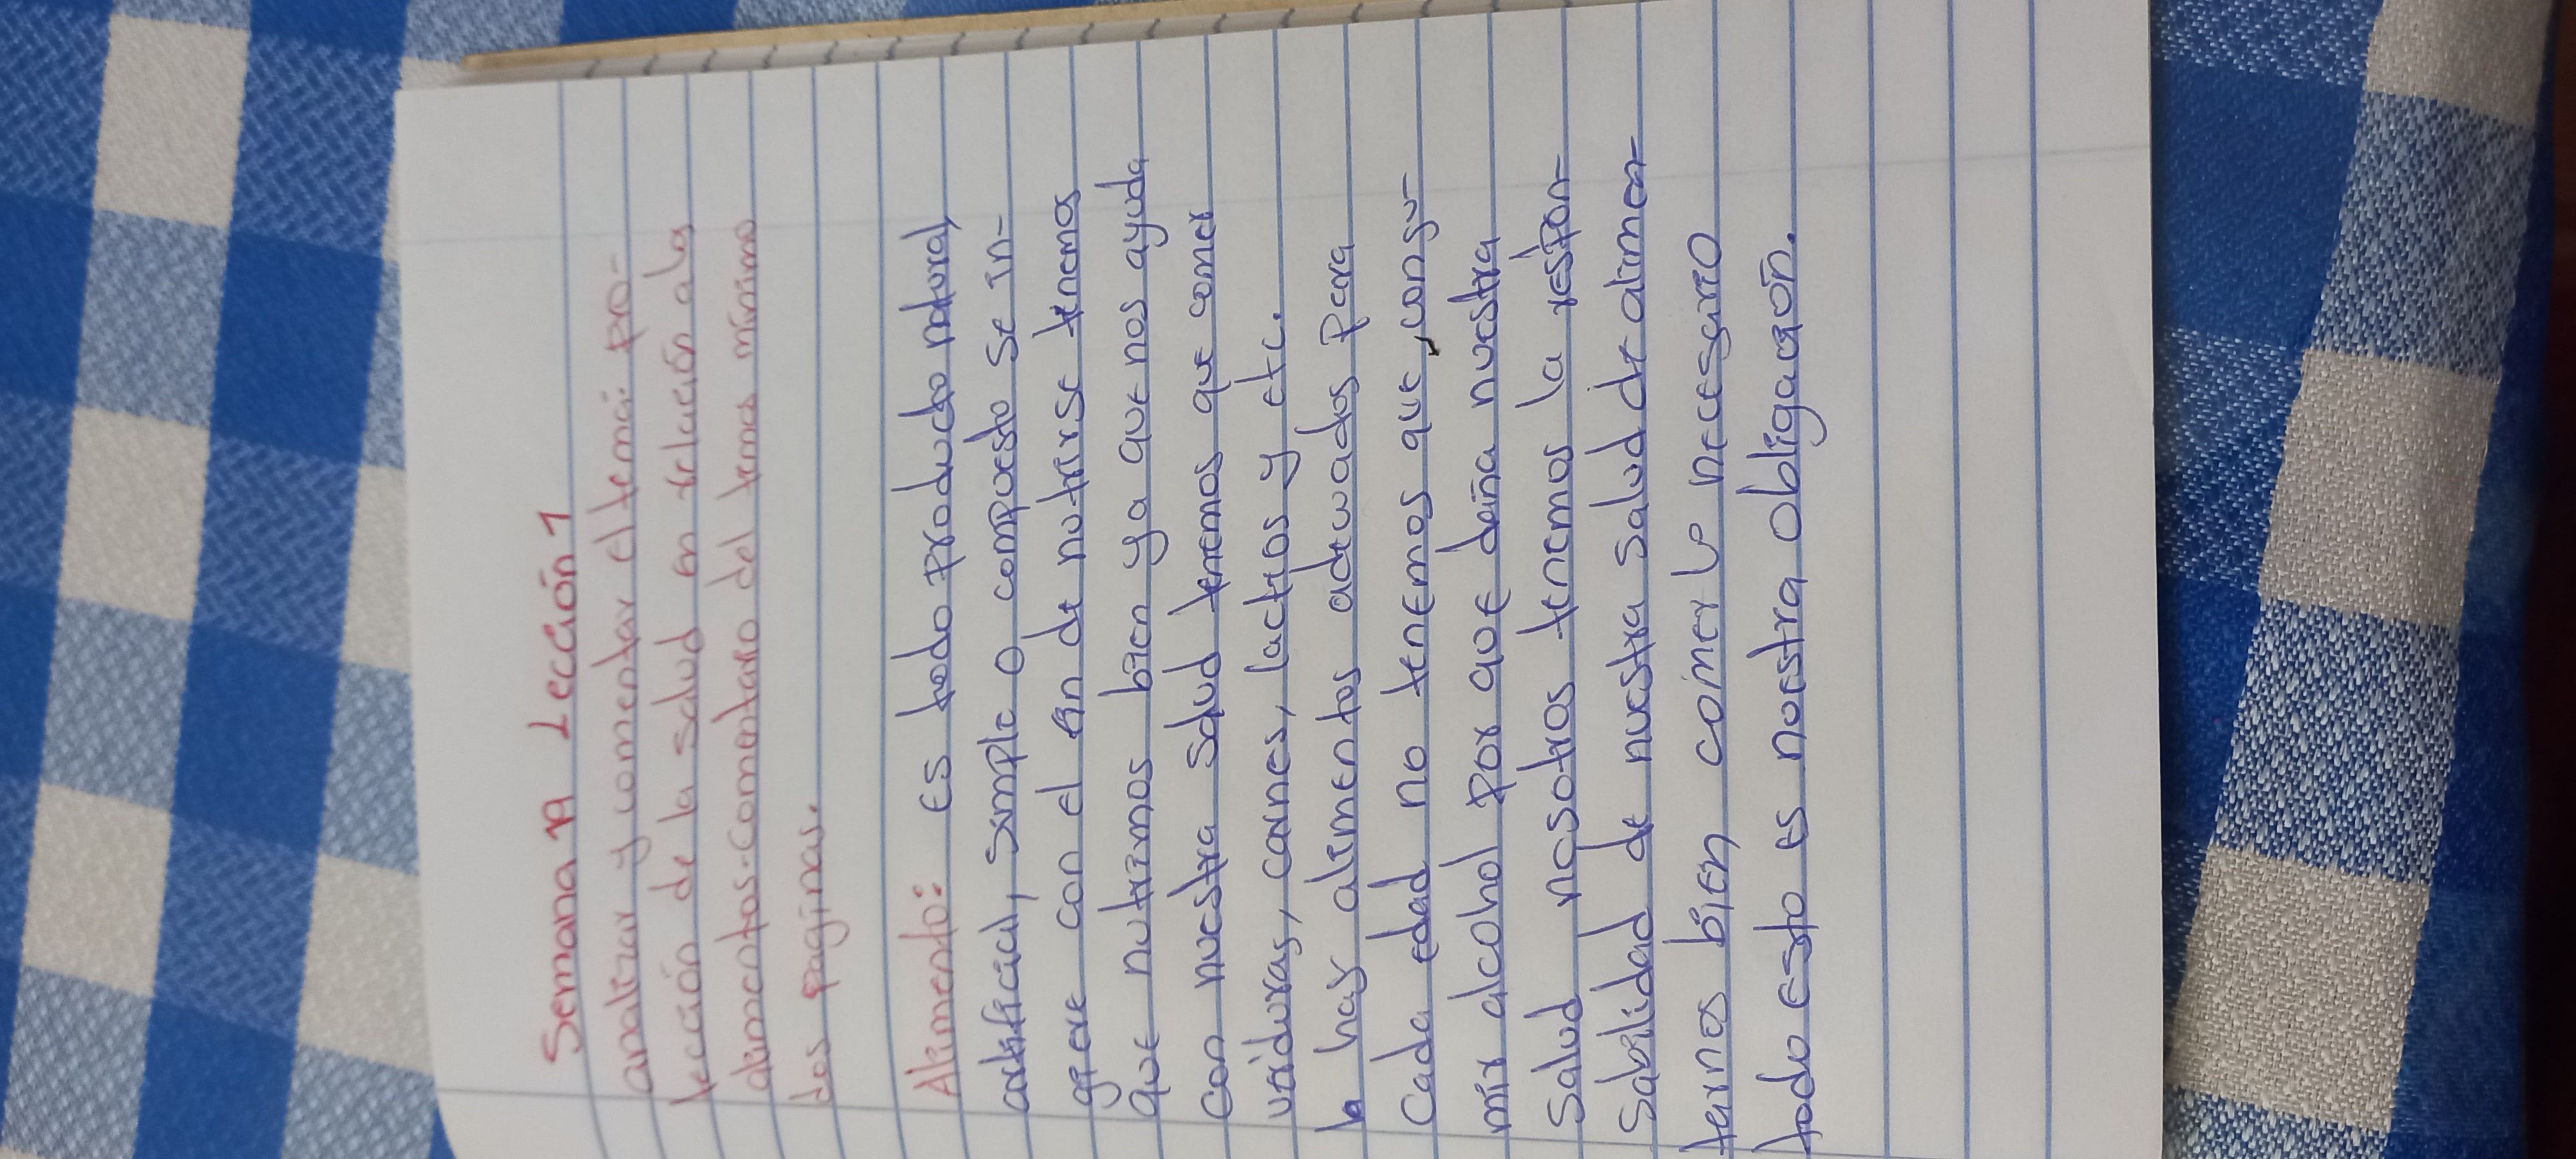 Semana 17 Lección 1
analizar y comentar el tema: pro-
tección de la salud en relación a la
alimentos. Comentario del tema mínimo
dos paginas.
Alimento: es todo producto natural,
artificial, simple o compuesto se in-
giere con el fin de nutrirse tenemos
que nutrirnos bien ya que nos ayuda
con nuestra salud tenemos que comer
verduras, carnes, lacteos y etc.
hay alimentos adecuados para
Cada edad no tenemos que, consu-
mir alcohol por que daña nuestra
Salud nosotros tenemos la respon-
sabilidad de nuestra salud de alimen-
tarnos bien comer lo necesario
todo esto es nuestra obligación.